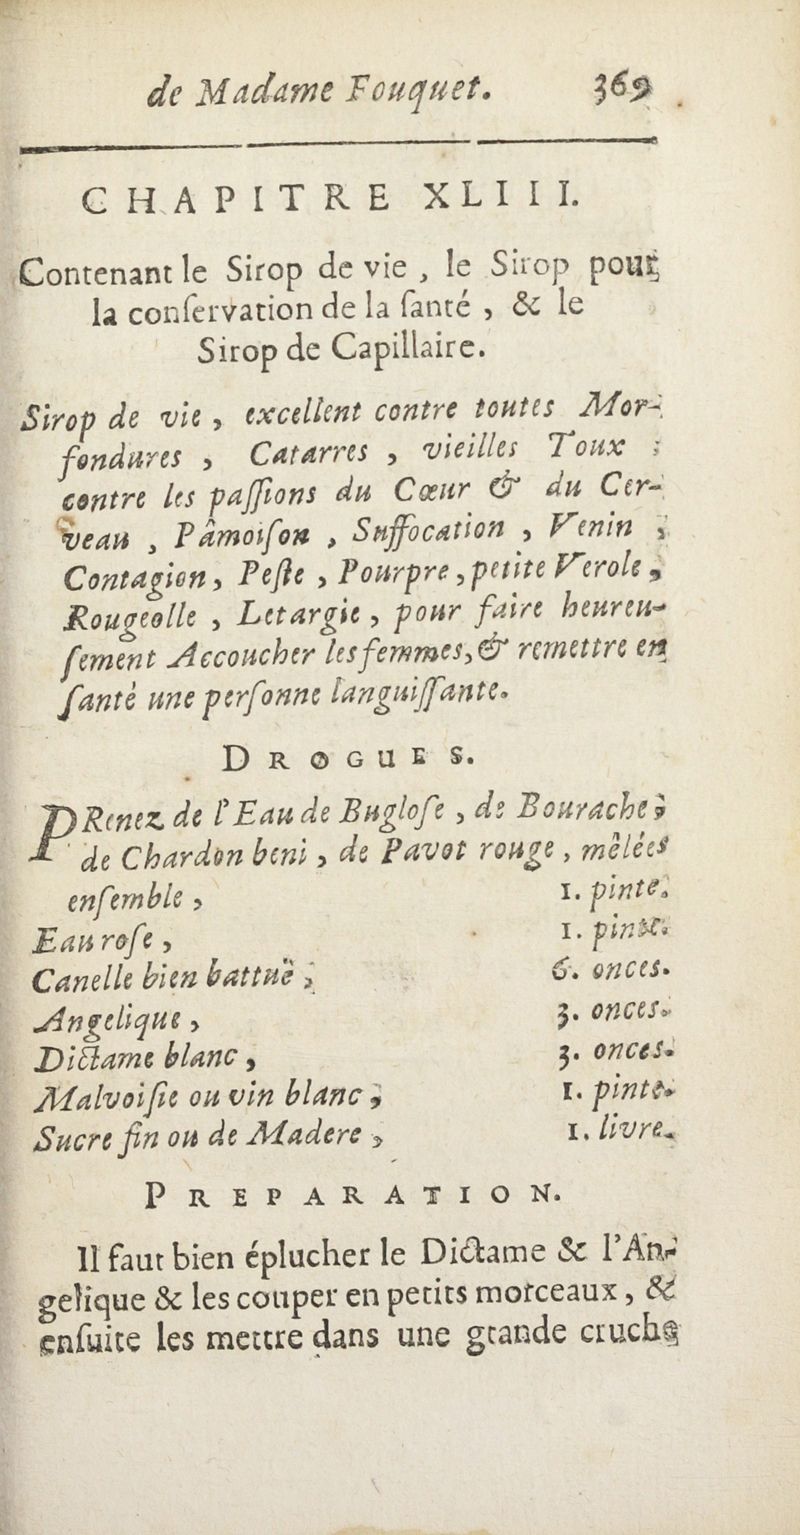 de Madame Fouquet. 369
CHAPITRE XLIII.
Contenant le Sirop de vie, le Sirop pour
la conſervation de la ſanté, & le
Sirop de Capillaire.
Sirop de vie, excellent contre toutes Mor-
fondures, Catarres, vieilles Toux ;
contre les paſſions du Cœur & du Cer-
veau, Pâmoiſon, Suffocation, Venin,
Contagion, Peſte, Pourpre, petite Verole,
Rougeolle, Letargie, pour faire heureu-
ſement Accoucher les femmes, & remettre en
ſanté une perſonne languiſſante.
DROGUES.
PRenez de l'Eau de Bugloſe, de Bourache,
de Chardon beni, de Pavot rouge, mêlées
enſemble, 1. pinte.
Eau roſe, 1. pinte.
Canelle bien battuë, 6. onces.
Angelique, 3. onces.
Dictame blanc, 3. onces.
Malvoiſie ou vin blanc, 1. pinte.
Sucre fin ou de Madere, 1. livre.
PREPARATION.
Il faut bien éplucher le Dictame & l'An-
gelique & les couper en petits morceaux, &
enſuite les mettre dans une grande cruche